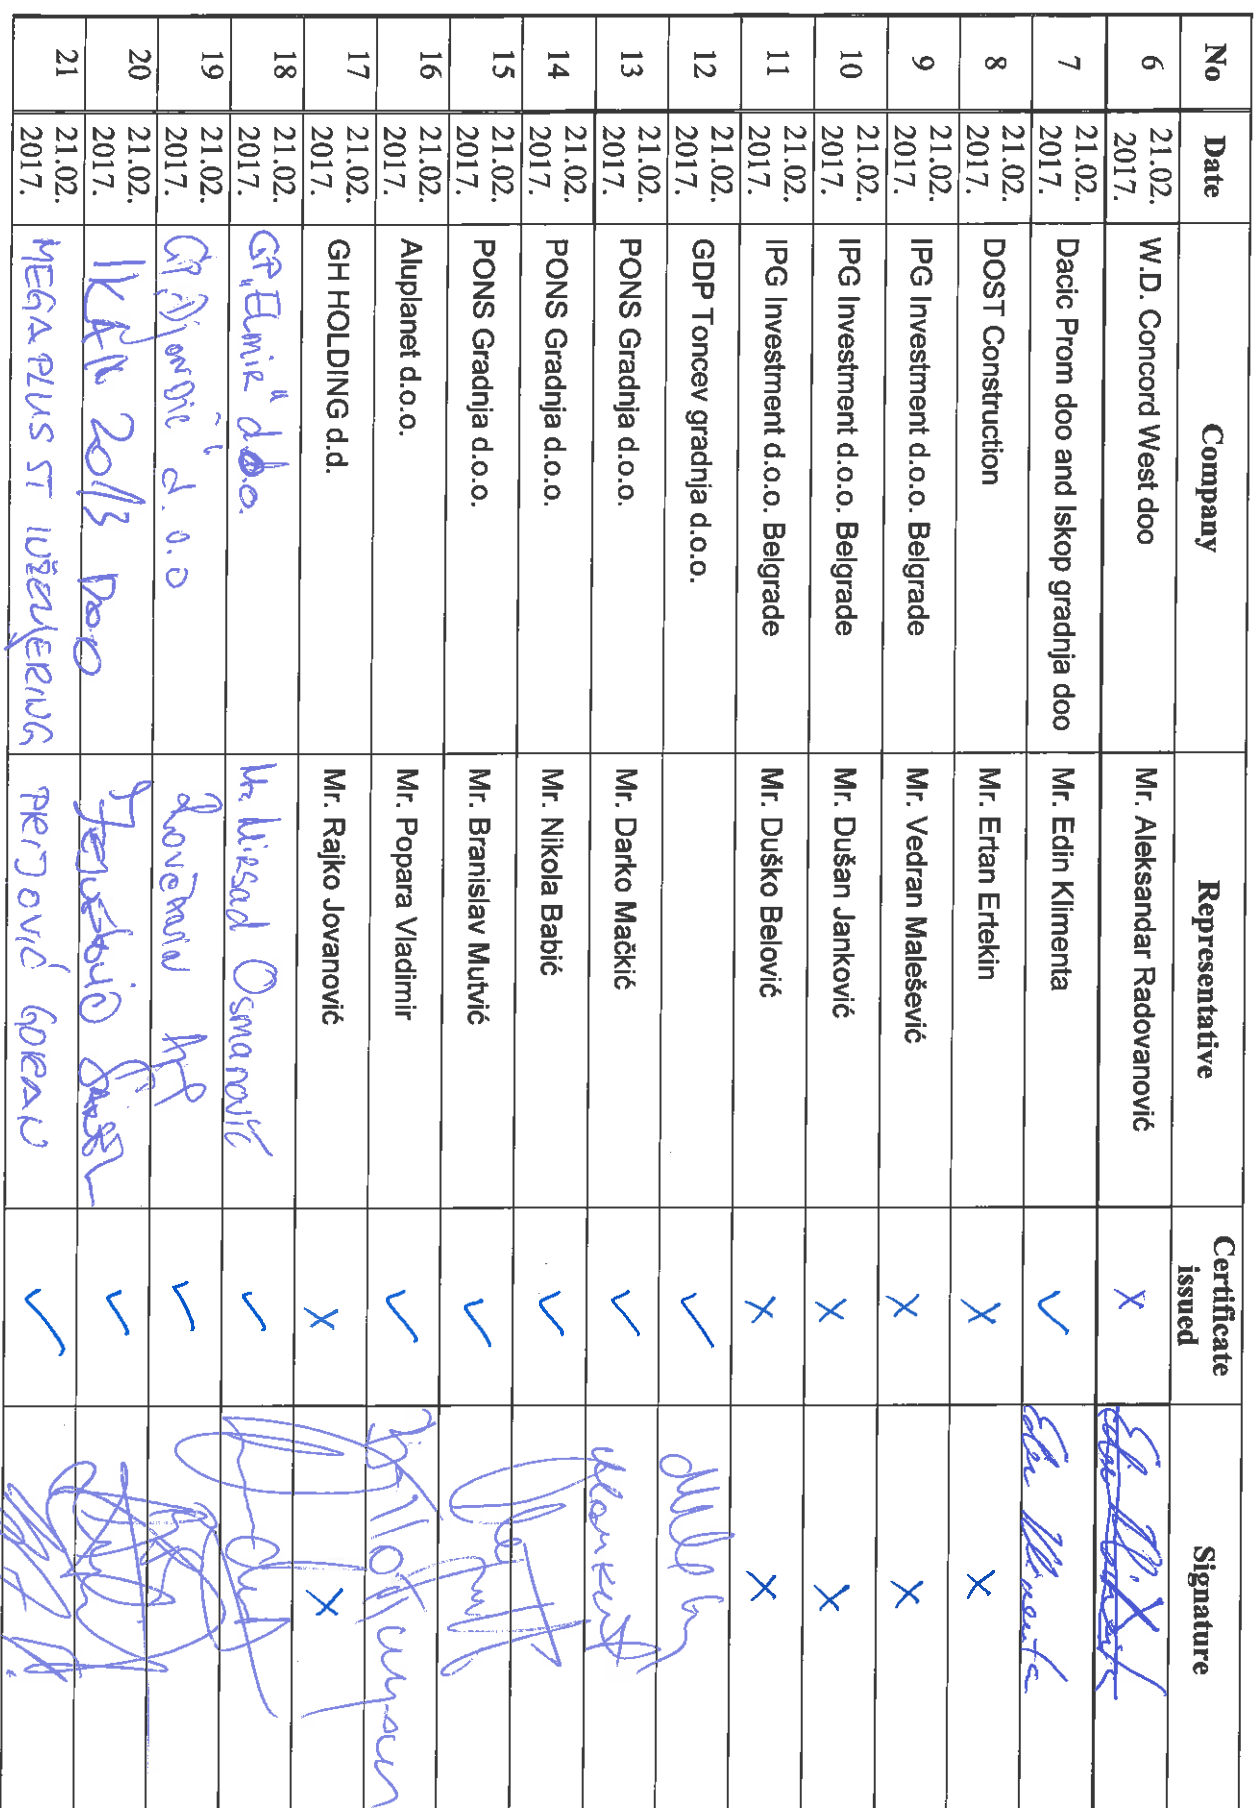 No Date Company Representative Certificate issued Signature
6 21.02. 2017. W.D. Concord West doo Mr. Aleksandar Radovanović X X
7 21.02. 2017. Dacic Prom doo and Iskop gradnja doo Mr. Edin Klimenta ✓ Edin Klimenta
8 21.02. 2017. DOST Construction Mr. Ertan Ertekin X X
9 21.02. 2017. IPG Investment d.o.o. Belgrade Mr. Vedran Malešević X X
10 21.02. 2017. IPG Investment d.o.o. Belgrade Mr. Dušan Janković X X
11 21.02. 2017. IPG Investment d.o.o. Belgrade Mr. Duško Belović X X
12 21.02. 2017. GDP Toncev gradnja d.o.o. ✓
13 21.02. 2017. PONS Gradnja d.o.o. Mr. Darko Mačkić ✓
14 21.02. 2017. PONS Gradnja d.o.o. Mr. Nikola Babić ✓
15 21.02. 2017. PONS Gradnja d.o.o. Mr. Branislav Mutvić ✓
16 21.02. 2017. Aluplanet d.o.o. Mr. Popara Vladimir ✓
17 21.02. 2017. GH HOLDING d.d. Mr. Rajko Jovanović X X
18 21.02. 2017. GP „Elmir" d.o.o. Mr. Mirsad Osmanović ✓
19 21.02. 2017. GP d.o.o ✓
20 21.02. 2017. 2013 DOO ✓
21 21.02. 2017. MEGA PLUS ST INŽENJERING PRIJOVIĆ GORAN ✓